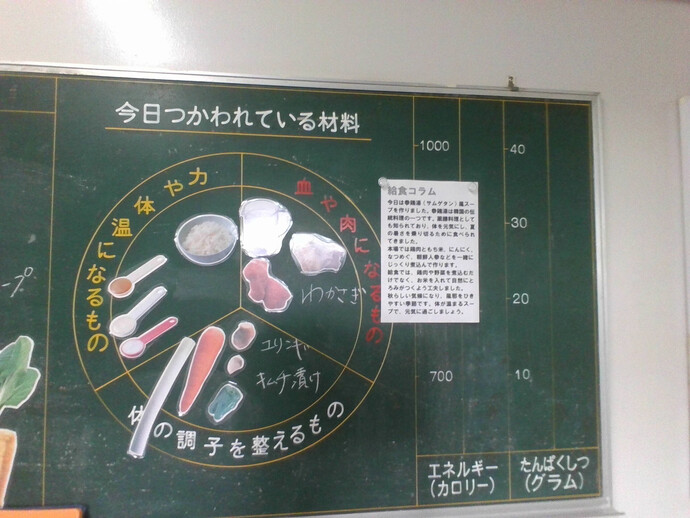 今日つかわれている材料
力や体温になるもの
血や肉になるもの
体の調子を整えるもの
わかさぎ
エリンギ
キムチ漬け
プ
給食コラム
今日は参鶏湯(サムゲタン)風スー
プを作りました。参鶏湯は韓国の伝
統料理の一つです。薬膳料理として
も知られており、体を元気にし、夏
の暑さを乗り切るために食べられ
てきました。
本場では鶏肉ともち米、にんにく、
なつめく、朝鮮人参などを一緒に
じっくり煮込んで作ります。
給食では、鶏肉や野菜を煮込むだ
けでなく、お米を入れて自然にと
ろみがつくよう工夫しました。
秋らしい気候になり、風邪をひき
やすい季節です。体が温まるスー
プで、元気に過ごしましょう。
1000
700
40
30
20
10
エネルギー
(カロリー)
たんぱくしつ
(グラム)